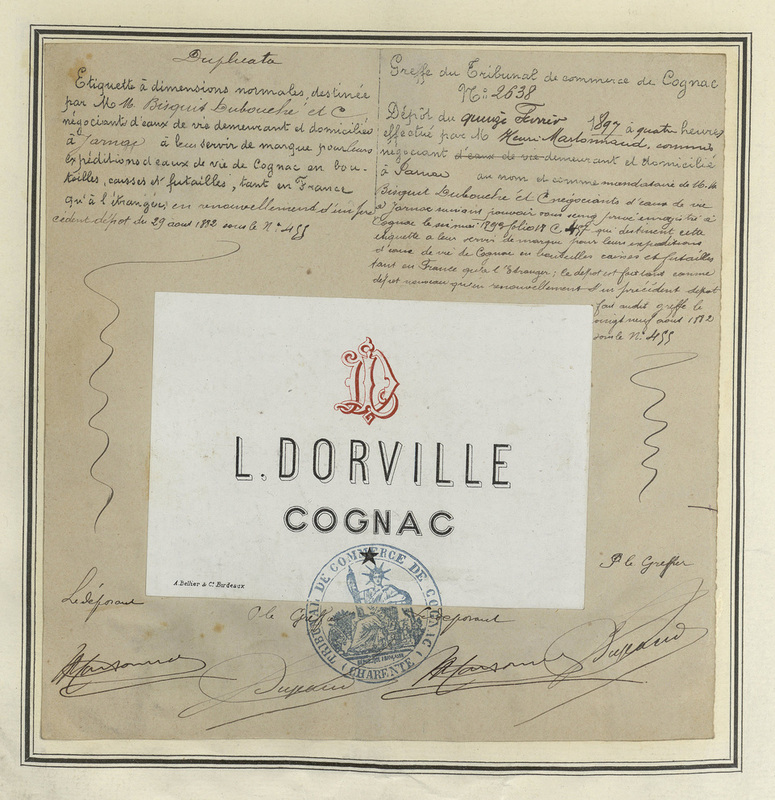 Duplicata
Etiquette à dimensions normales, destinée
par M.M. Bisquit Dubouché et C
négociants d'eaux de vie demeurant et domiciliés
à Jarnac à leur servir de marque pour leurs
expéditions d'eaux de vie de Cognac en bou-
teilles, caisses et futailles, tant en France
qu'à l'étranger; en renouvellement d'un pré
cédent dépôt du 29 aout 1882 sous le N° 455
Greffe du Tribunal de commerce de Cognac
N°: 2638
Dépôt du quinze Février 1897 à quatre heures
effectué par M Henri
négociant d'eaux de vie demeurant et domicilié
à Jarnac au nom et comme mandataire de M.M.
Bisquit Dubouché et C négociants d'eaux de vie
à Jarnac suivant pouvoir sous seing privé enregistré à
Cognac le qui destinent cette
étiquette a leur servir de marque pour leurs expéditions
d'eaux de vie de Cognac en bouteilles caisses et futailles
tant en France qu'à l'Etranger; le dépôt est fait tant comme
dépôt nouveau qu'en renouvellement d'un précédent dépôt
fait audit greffe le
vingt neuf aout 1882
sous le N° 455
L. DORVILLE
COGNAC
A. Bellier & Cie Bordeaux
TRIBUNAL DE COMMERCE DE COGNAC
(CHARENTE)
P. le Greffier
Le déposant
P le Gref
Le déposant